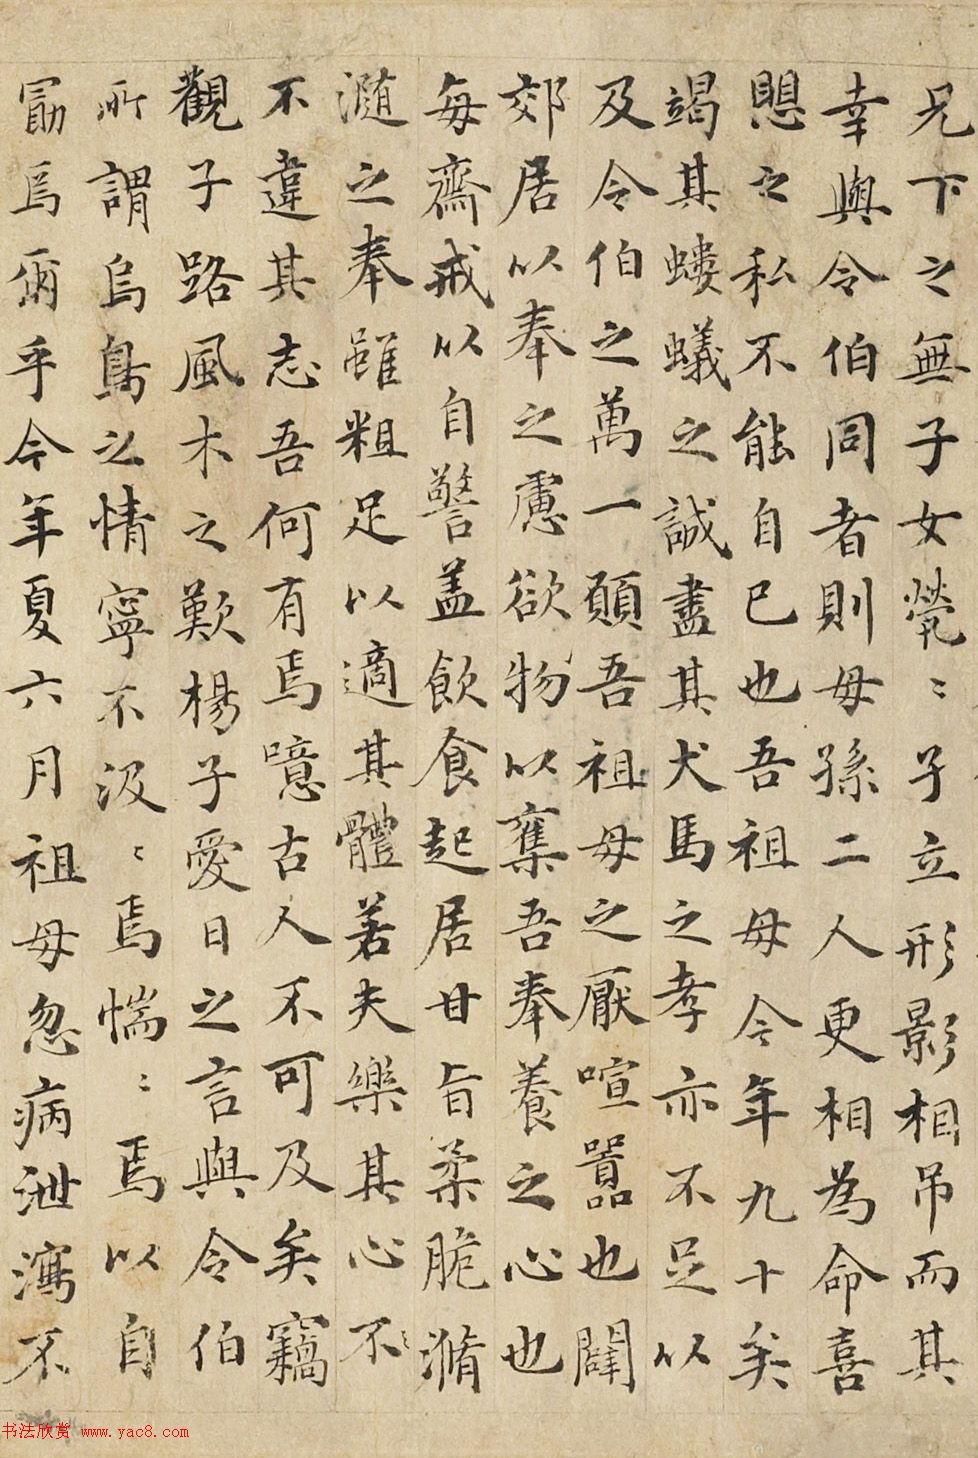 兄下之無子女煢〻子立形影相吊而其
幸與令伯同者則母孫二人更相為命喜
思之私不能自已也吾祖母今年九十矣
竭其螻蟻之誠盡其犬馬之孝亦不足以
及令伯之萬一願吾祖母之厭喧囂也闢
郊居以奉之慮欲物以奪吾奉養之心也
每齋戒以自警盖飲食起居甘旨柔脆滫
瀡之奉雖粗足以適其體若夫樂其心不
不違其志吾何有焉噫古人不可及矣竊
觀子路風木之歎楊子愛日之言與令伯
所謂烏鳥之情寧不汲〻焉惴〻焉以自
勖焉爾乎今年夏六月祖母忽病泄瀉不
书法欣赏 www.yac8.com